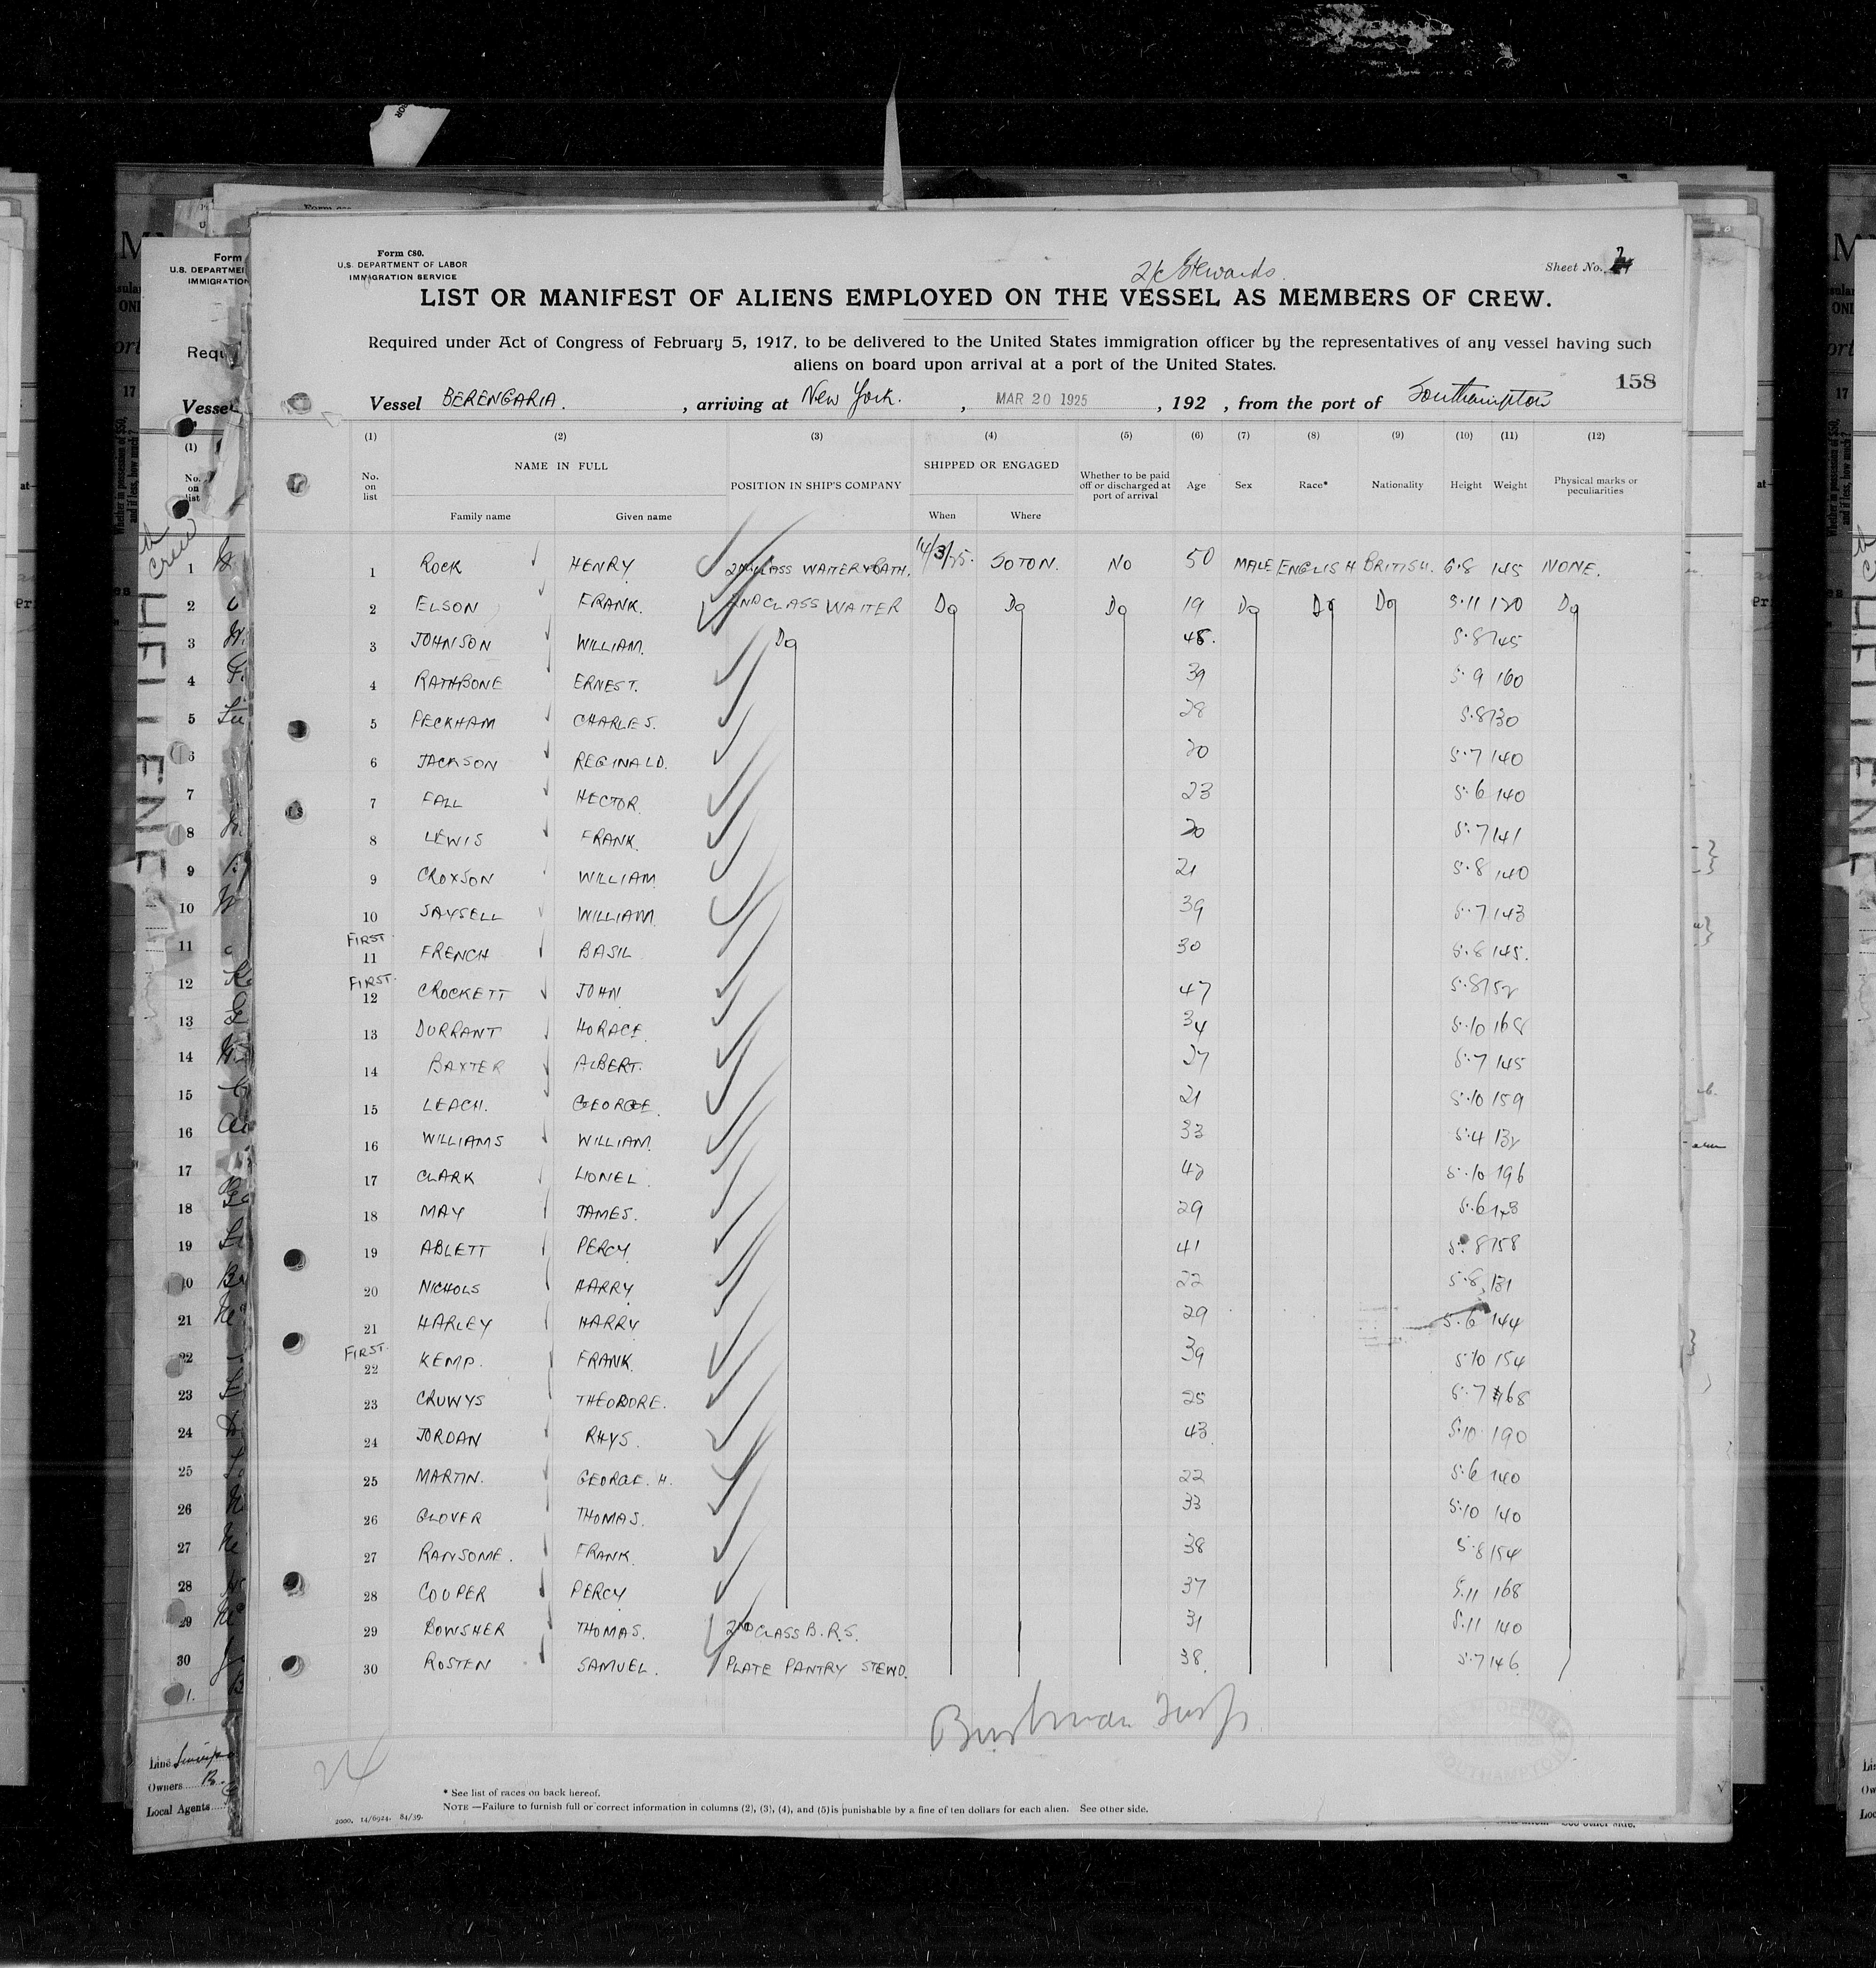 Form C80.
U.S. DEPARTMENT OF LABOR
IMMIGRATION SERVICE
2/c Stewards.
Sheet No.
LIST OR MANIFEST OF ALIENS EMPLOYED ON THE VESSEL AS MEMBERS OF CREW.
Required under Act of Congress of February 5, 1917, to be delivered to the United States immigration officer by the representatives of any vessel having such
aliens on board upon arrival at a port of the United States.
158
Vessel BERENGARIA. , arriving at New York. , MAR 20 1925 , 192 , from the port of Southampton
(1) (2) (3) (4) (5) (6) (7) (8) (9) (10) (11) (12)
No. on list NAME IN FULL POSITION IN SHIP'S COMPANY SHIPPED OR ENGAGED Whether to be paid off or discharged at port of arrival Age Sex Race* Nationality Height Weight Physical marks or peculiarities
Family name Given name When Where
1 ROCK HENRY 2ND CLASS WAITER & BATH. 14/3/25. SOTON. NO 50 MALE ENGLISH BRITISH. 5.8 145 NONE.
2 ELSON FRANK. 2ND CLASS WAITER Do Do Do 19 Do Do Do 5.11 120 Do
3 JOHNSON WILLIAM. Do 45. 5.8 145
4 RATHBONE ERNEST. 39 5.9 160
5 PECKHAM CHARLES. 28 5.8 130
6 JACKSON REGINALD. 20 5.7 140
7 FALL HECTOR 23 5.6 140
8 LEWIS FRANK. 20 5.7 141
9 CROXSON WILLIAM 21 5.8 140
10 SAYSELL WILLIAM 39 5.7 143
FIRST 11 FRENCH BASIL 30 5.8 145.
FIRST. 12 CROCKETT JOHN 47 5.8 152
13 DURRANT HORACE. 34 5.10 168
14 BAXTER ALBERT. 27 5.7 145
15 LEACH. GEORGE. 21 5.10 159
16 WILLIAMS WILLIAM. 33 5.4 132
17 CLARK LIONEL. 42 5.10 196
18 MAY JAMES. 29 5.6
19 ABLETT PERCY 41 5.8 158
20 NICHOLS HARRY 22 5.8 131
21 HARLEY HARRY 29 5.6 144
FIRST. 22 KEMP. FRANK. 39 5.10 154
23 CRUWYS THEODORE. 25 5.7 168
24 JORDAN RHYS. 43. 5.10 190
25 MARTIN. GEORGE. H. 22 5.6 140
26 GLOVER THOMAS. 33 5.10 140
27 RANSOME. FRANK. 38 5.8 154
28 COUPER PERCY 37 5.11 168
29 BOWSHER THOMAS. 2ND CLASS B.R.S. 31 5.11 140
30 ROSTEN SAMUEL. PLATE PANTRY STEWD. 38. 5.7 146
* See list of races on back hereof.
NOTE —Failure to furnish full or correct information in columns (2), (3), (4), and (5) is punishable by a fine of ten dollars for each alien. See other side.
2000, 14/6924. 84/39.